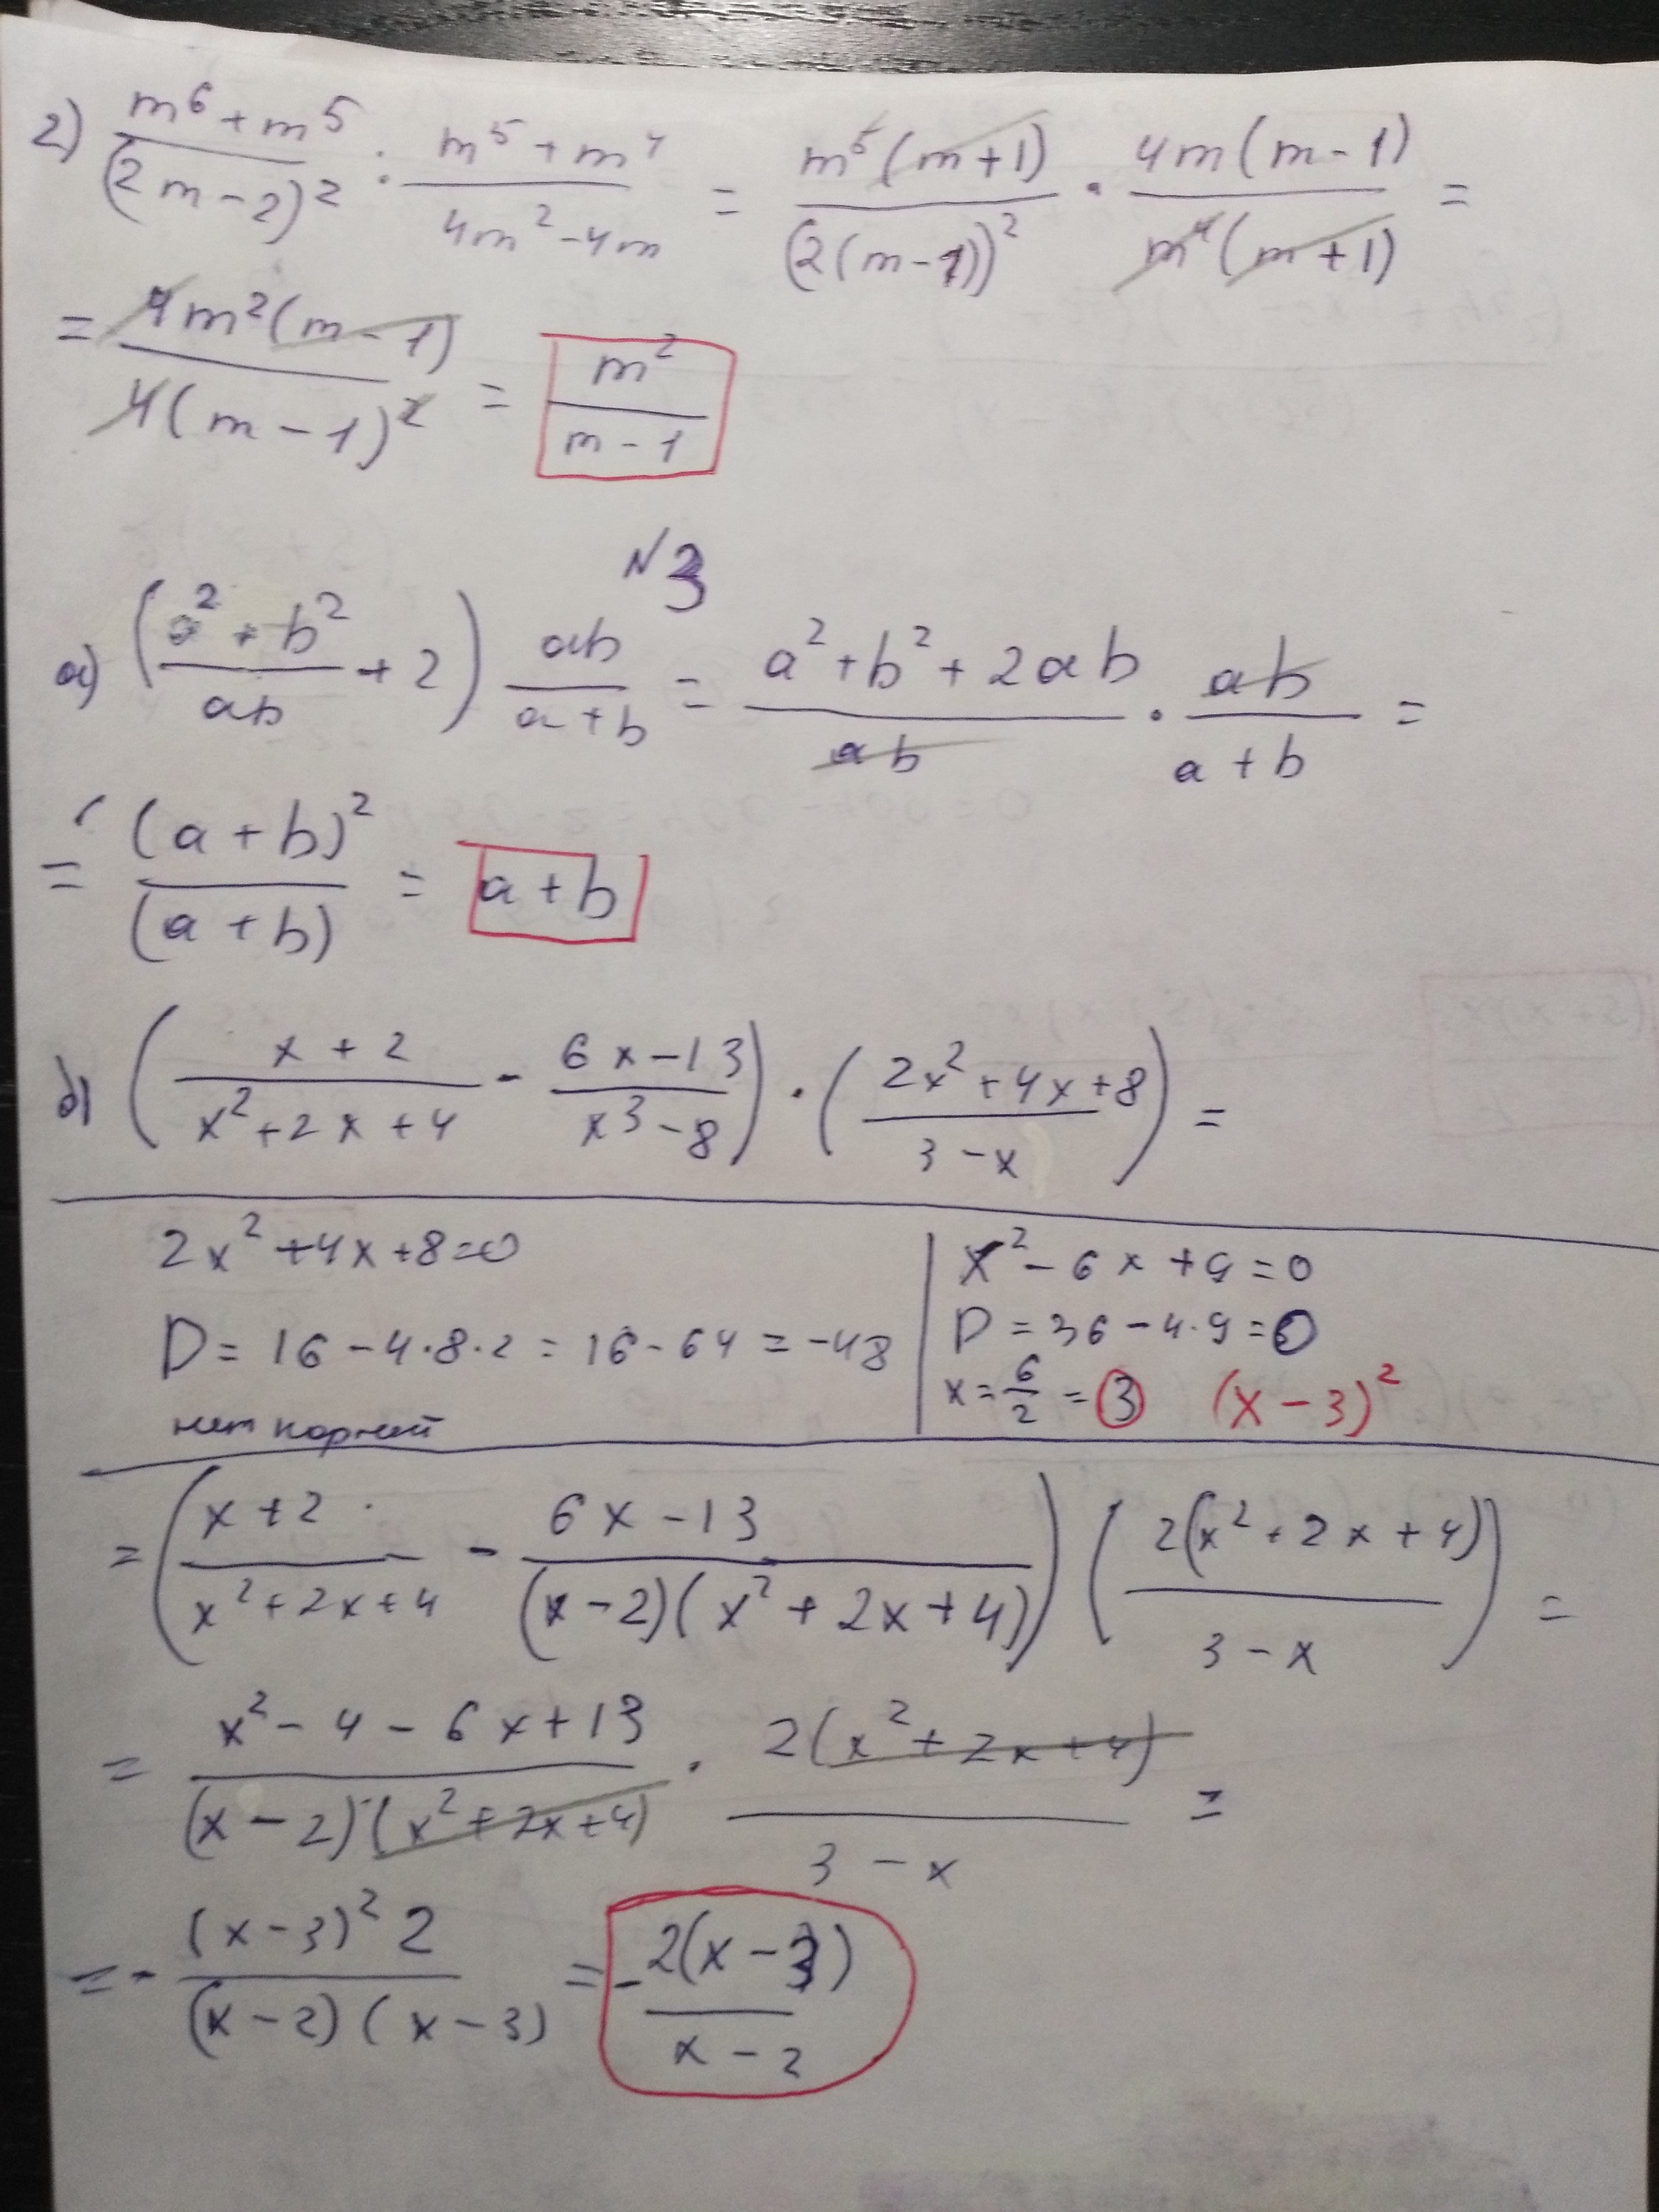 г) (m⁶ + m⁵)/(2m - 2)² : (m⁵ + m⁴)/(4m² - 4m) = (m⁵(m + 1))/(2(m - 1))² · (4m(m - 1))/(m⁴(m + 1)) =
= (4m²(m - 1))/(4(m - 1)²) = m²/(m - 1)
№3
а) ((a² + b²)/(ab) + 2) (ab)/(a + b) = (a² + b² + 2ab)/(ab) · (ab)/(a + b) =
= (a + b)²/(a + b) = a + b
б) ((x + 2)/(x² + 2x + 4) - (6x - 13)/(x³ - 8)) · ((2x² + 4x + 8)/(3 - x)) =
2x² + 4x + 8 = 0
D = 16 - 4·8·2 = 16 - 64 = -48
нет корней
x² - 6x + 9 = 0
D = 36 - 4·9 = 0
x = 6/2 = 3 (x - 3)²
= ((x + 2)/(x² + 2x + 4) - (6x - 13)/((x - 2)(x² + 2x + 4))) (2(x² + 2x + 4)/(3 - x)) =
= (x² - 4 - 6x + 13)/((x - 2)·(x² + 2x + 4)) · 2(x² + 2x + 4)/(3 - x) =
= - ((x - 3)² 2)/((x - 2)(x - 3)) = - 2(x - 3)/(x - 2)